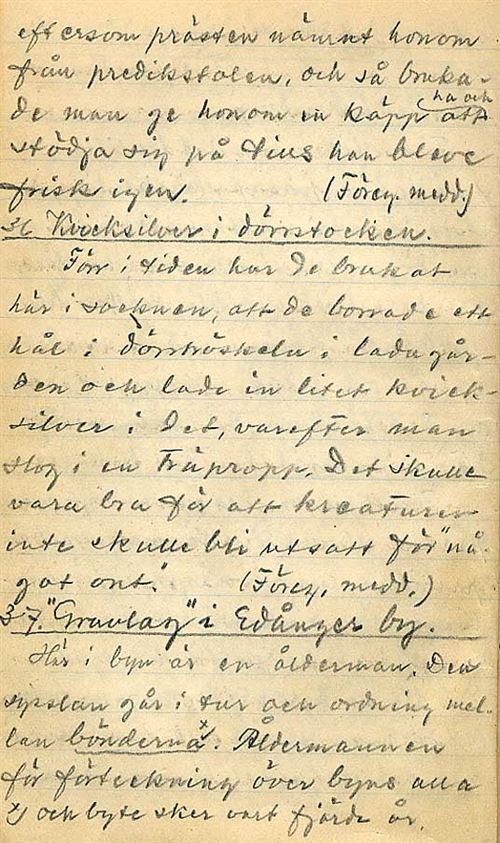 eftersom prästen nämnt honom
från predikstolen, och så bruka-
de man ge honom en käpp ha och att
stödja sig på tius han bleve
frisk igen. (Föreg. medd.)
36 Kvicksilver i dörrstocken.
Förr i tiden har de brukat
här i socknen, att de borrade ett
hål i dörrtröskeln i ladugår-
den och lade in litet kvick-
silver i det, varefter man
slog i en träpropp. Det skulle
vara bra för att kreaturen
inte skulle bli utsatt för "nå-
got ont." (Föreg. medd.)
37. "Gravlag" i Edånger by.
Här i byn är en ålderman. Den
sysslan går i tur och ordning mel-
lan bönderna x. Åldermannen
för förteckning över byns alla
x) och byte sker vart fjärde år.